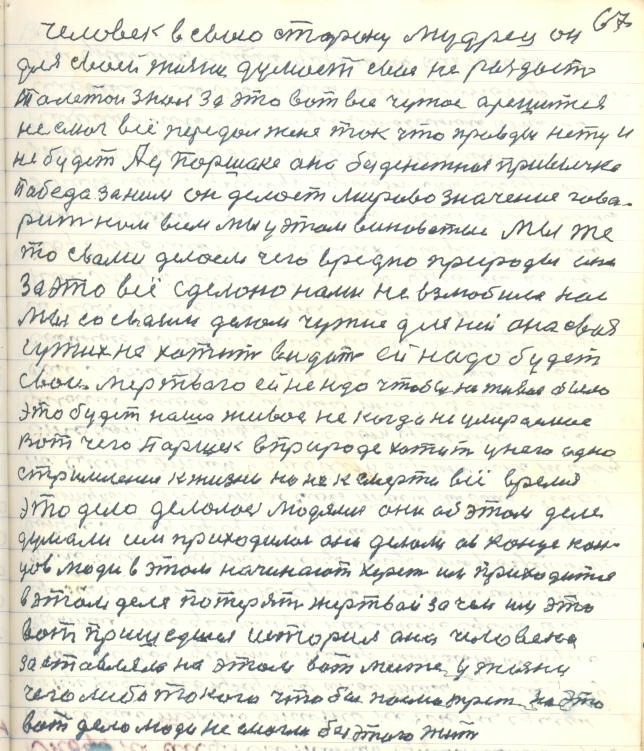 67
человек в свою сторону мудрец он
для своей жизни думоет свое не роздост
за это вот все чужое
не смог всё передол жене ток что провды нету и
не будет Ад Поршаке она безденежная привычка
победа за ним он делоет мирово значение гова-
рит ном всем мы у этом виноватые Мы же
то свами делоем чего вредно природы она
За это всё сделоно нами не взлюбила нас
мы со своими делом чужие для ней она своя
чужих не хотит видить ей надо будет
свои мертваго ей не надо чтобы на живое было
это будет наша живое не когда не умираемое
вот чего Паршек в природе хотит у него одно
стримления к жизни но не к смерти всё время
это дело делолос людями они об этом деле
думали им приходилос они делоли а в конце кон-
цов люди в этом начинают им приходится
в этом деля потерят жертвай зачем им это
вот пришедшия история она человека
заставляла на этом вот месте у жизни
чего либо токого что бы посматрет за это
вот дело люди не смогли бы этого жит